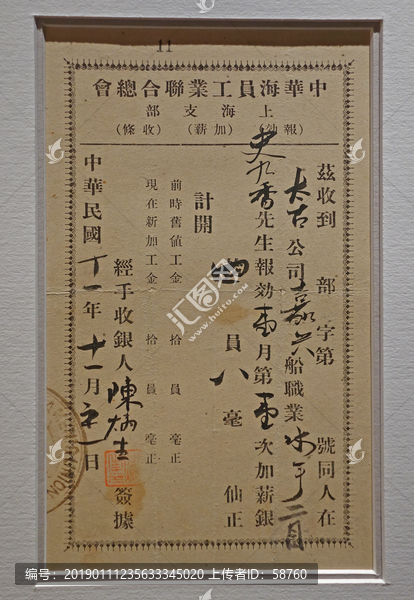 11
中華海員工業聯合總會
上海支部
（報効）（加薪）（收條）
茲收到　部　字第　號同人在
太古公司嘉興船職業水手二百
史九香先生報効壹月第壹次加薪銀
員八毫　仙正
計開
前時舊値工金　拾　員　毫正
現在新加工金　拾　員　毫正
經手收銀人陳炳生簽據
中華民國十一年十一月　日
汇图网
www.huitu.com
编号：20190111235633345020 上传者ID：58760